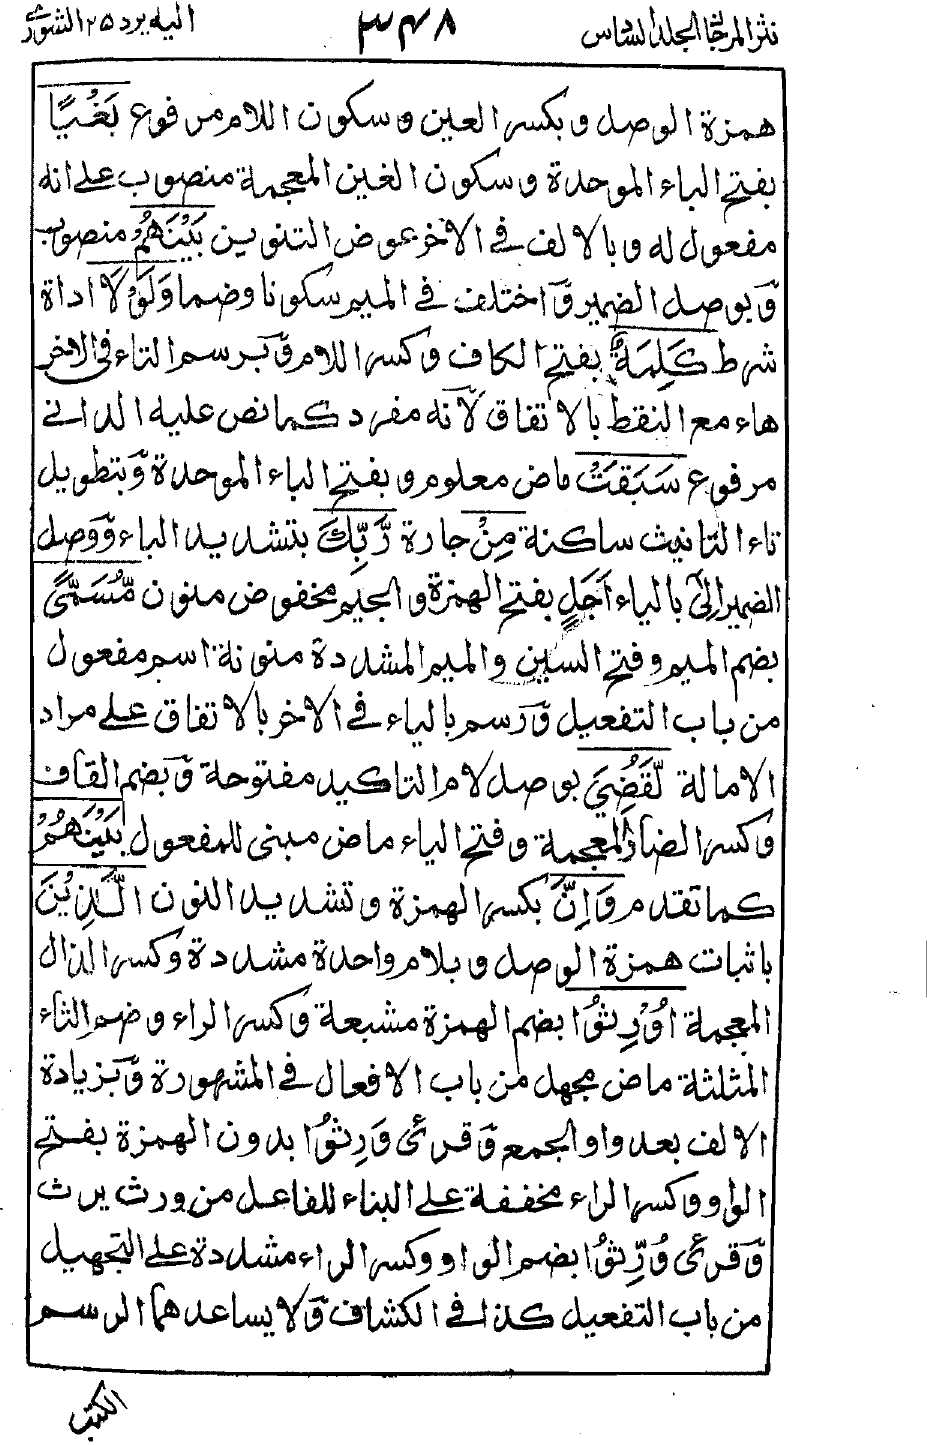 نثر المرجان المجلد السادس
٣٤٨
اليه يرد ٢٥ الشورى
همزة الوصل وبكسر العين وسكون اللام مرفوع بَغْيًا
بفتح الباء الموحدة وسكون الغين المعجمة منصوب على انه
مفعول له وبالالف في الاخر عوض التنوين بَيْنَهُمْ منصوب
وَبوصل الضمير وَاختلف في الميم سكونا وضما وَلَوْلَا اداة
شرط كَلِمَةٌ بفتح الكاف وكسر اللام وَبرسم التاء في الاخر
هاء مع النقط بالاتفاق لَانه مفرد كما نص عليه الداني
مرفوع سَبَقَتْ ماض معلوم وبفتح الباء الموحدة وَبتطويل
تاء التانيث ساكنة مِنْ جارة رَّبِّكَ بتشديد الباء وَوصل
الضمير اِلٰٓى بالياء اَجَلٍ بفتح الهمزة والجيم مخفوض منون مُّسَمًّى
بضم الميم وفتح السين والميم المشددة منونة اسم مفعول
من باب التفعيل وَرسم بالياء في الاخر بالاتفاق على مراد
الامالة لَّقُضِيَ بوصل لام التاكيد مفتوحة وَبضم القاف
وكسر الضاد المعجمة وفتح الياء ماض مبنى للمفعول بَيْنَهُمْ
كما تقدم وَاِنَّ بكسر الهمزة وتشديد النون الَّذِيْنَ
باثبات همزة الوصل وبلام واحدة مشددة وكسر الذال
المعجمة اُوْرِثُوا بضم الهمزة مشبعة وكسر الراء وضم الثاء
المثلثة ماض مجهل من باب الافعال في المشهورة وَبزيادة
الالف بعد واو الجمع وَقرئ وَرِثُوا بدون الهمزة بفتح
الواو وكسر الراء مخففة على البناء للفاعل من ورث يرث
وَقرئ وُرِّثُوا بضم الواو وكسر الراء مشددة على التجهيل
من باب التفعيل كذا في الكشاف وَلا يساعدهما الرسم
الكتب